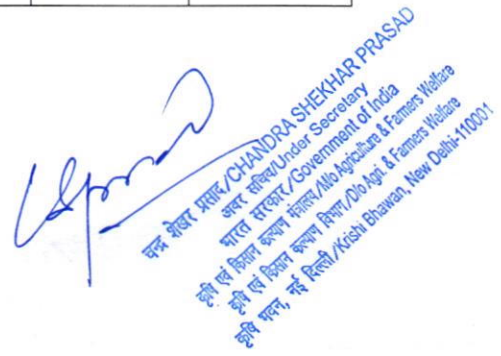 CSPrasad
चन्द्र शेखर प्रसाद/CHANDRA SHEKHAR PRASAD
अवर सचिव/Under Secretary
भारत सरकार/Government of India
कृषि एवं किसान कल्याण मंत्रालय/M/o Agriculture & Farmers Welfare
कृषि एवं किसान कल्याण विभाग/D/o Agri. & Farmers Welfare
कृषि भवन, नई दिल्ली/Krishi Bhawan, New Delhi-110001